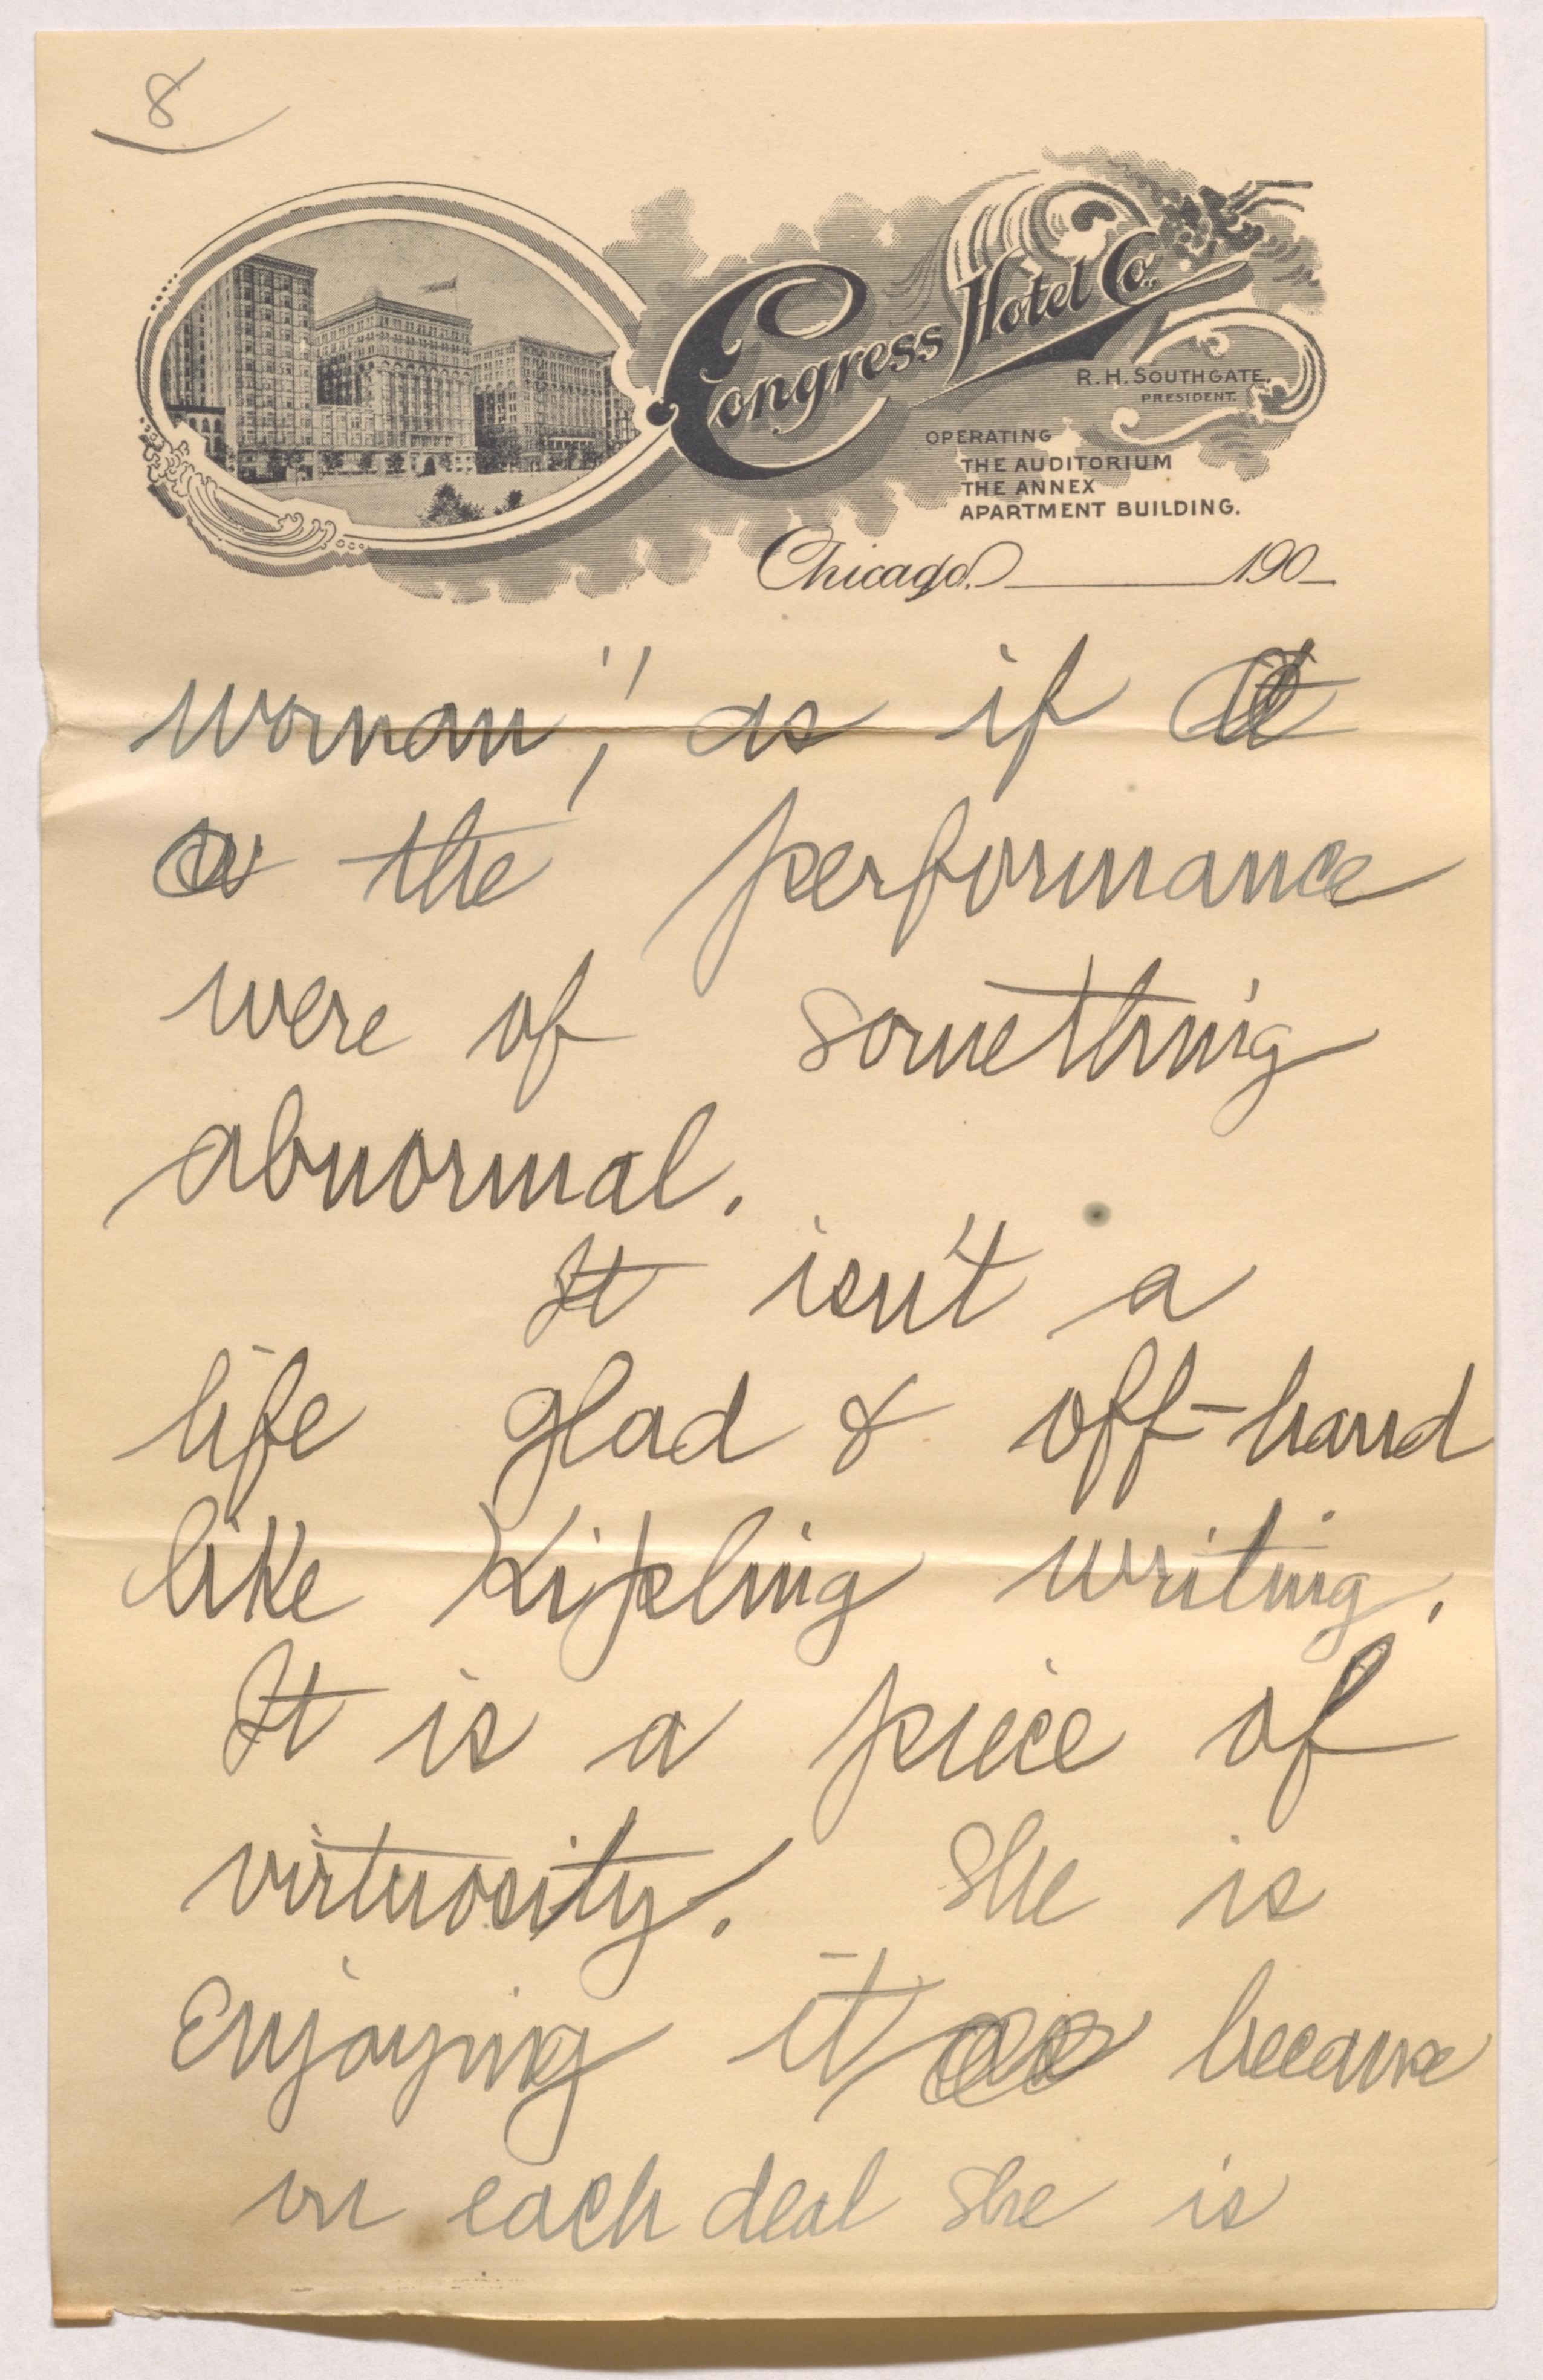 8
Congress Hotel Co.
R. H. SOUTHGATE,
PRESIDENT.
OPERATING
THE AUDITORIUM
THE ANNEX
APARTMENT BUILDING.
Chicago, 190
woman", as if
the performance
were of something
abnormal.
It isn't a
life glad & off-hand
like Kipling writing.
It is a piece of
virtuosity. She is
enjoying it because
in each deal she is